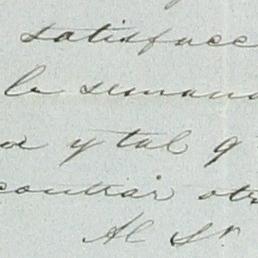 satisface
la semana
y tal q
contrar otr
Al Sr.